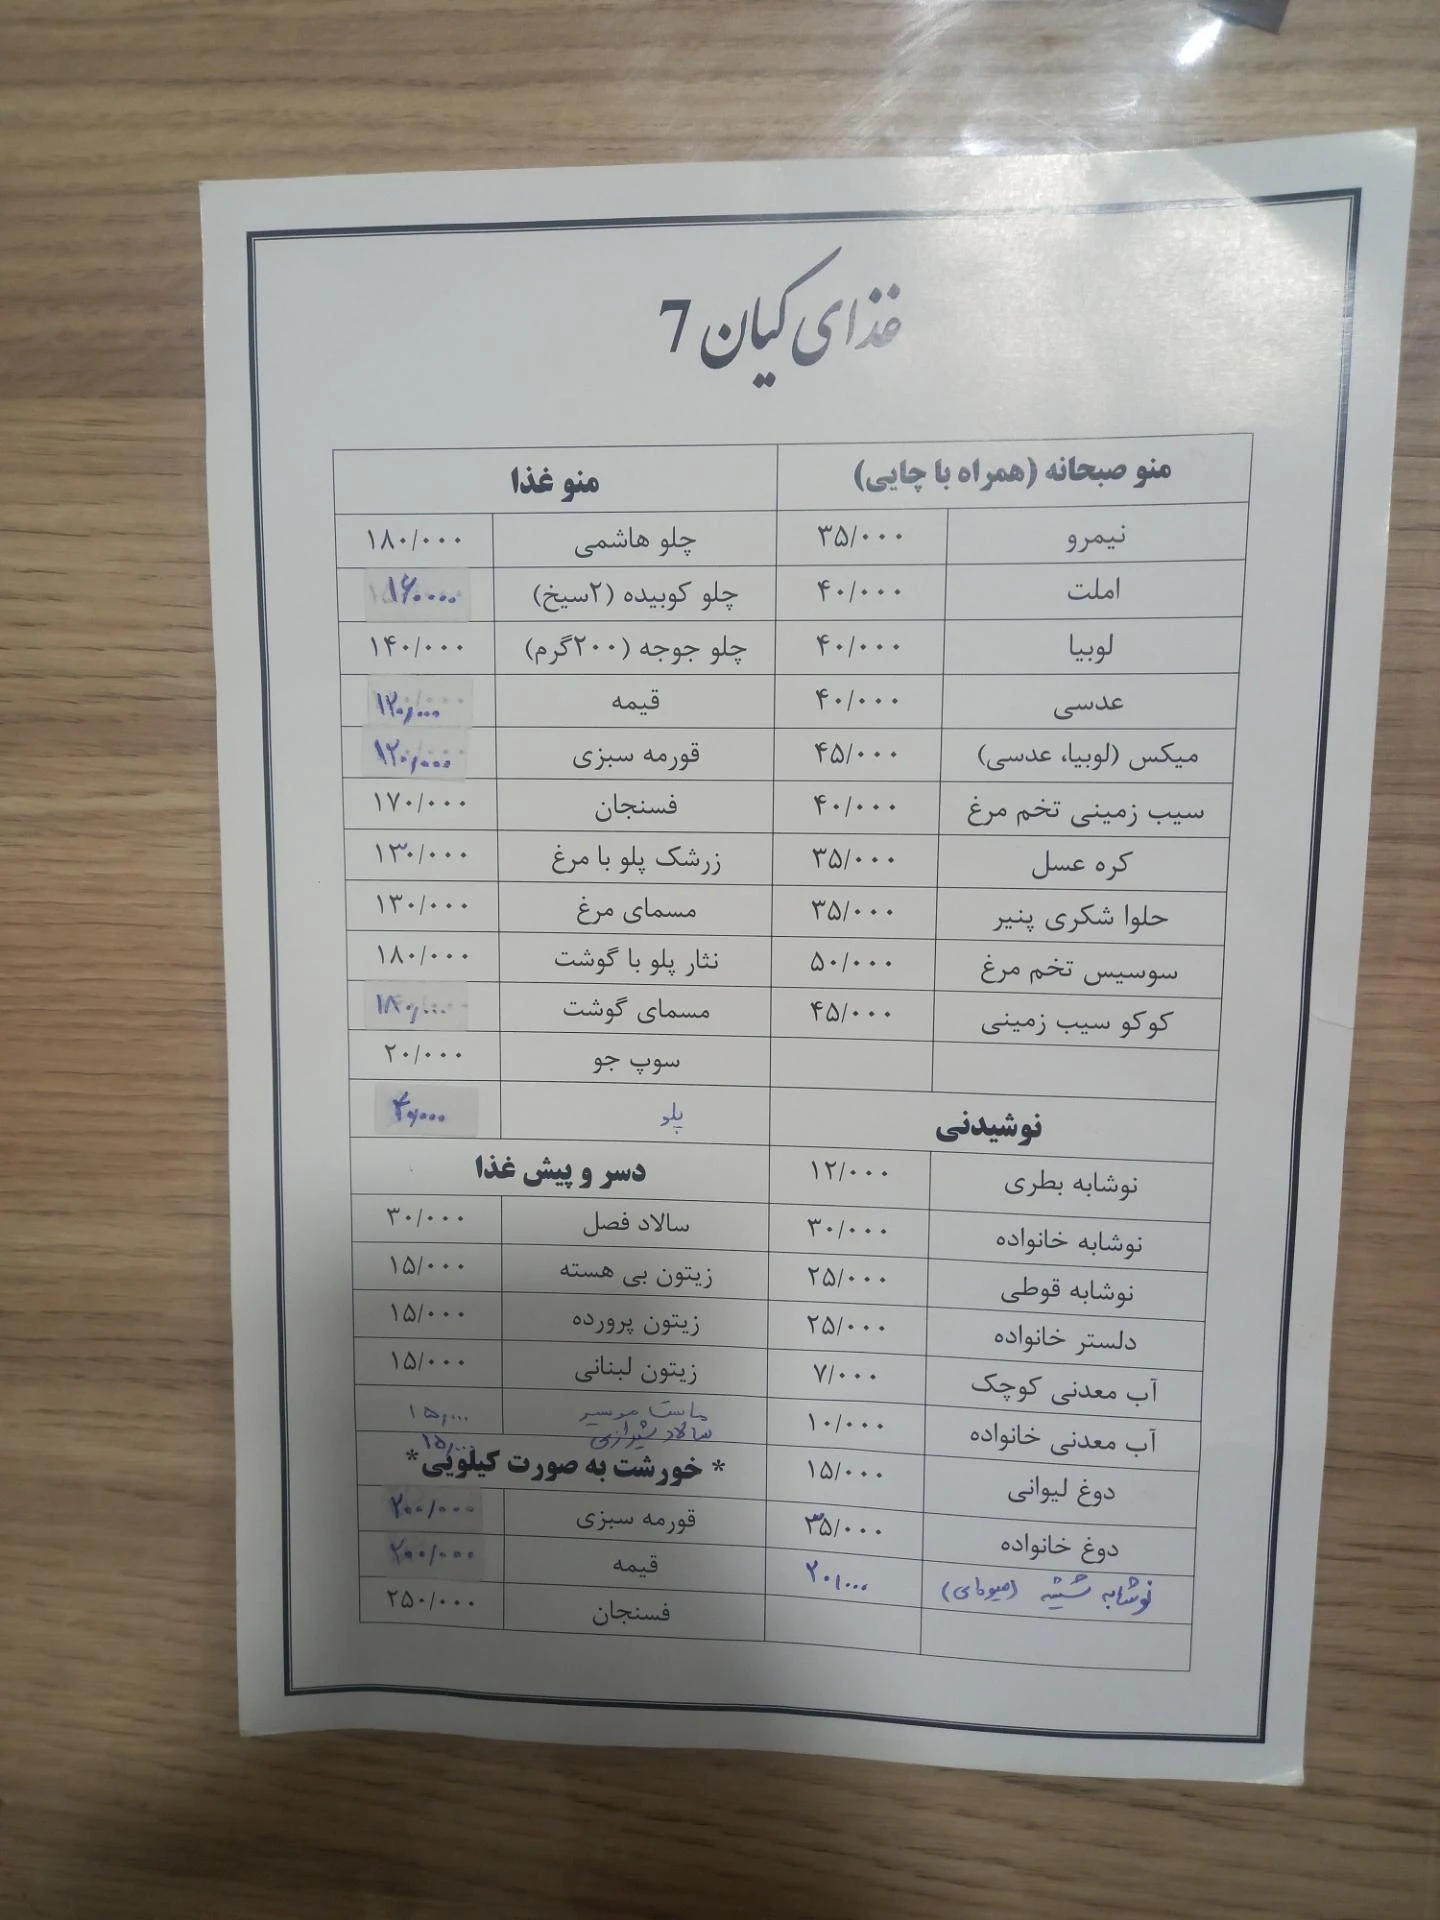 غذای کیان 7
منو صبحانه (همراه با چایی)
نیمرو ۳۵/۰۰۰
املت ۴۰/۰۰۰
لوبیا ۴۰/۰۰۰
عدسی ۴۰/۰۰۰
میکس (لوبیا، عدسی) ۴۵/۰۰۰
سیب زمینی تخم مرغ ۴۰/۰۰۰
کره عسل ۳۵/۰۰۰
حلوا شکری پنیر ۳۵/۰۰۰
سوسیس تخم مرغ ۵۰/۰۰۰
کوکو سیب زمینی ۴۵/۰۰۰
نوشیدنی
نوشابه بطری ۱۲/۰۰۰
نوشابه خانواده ۳۰/۰۰۰
نوشابه قوطی ۲۵/۰۰۰
دلستر خانواده ۲۵/۰۰۰
آب معدنی کوچک ۷/۰۰۰
آب معدنی خانواده ۱۰/۰۰۰
دوغ لیوانی ۱۵/۰۰۰
دوغ خانواده ۳۵/۰۰۰
نوشابه شیشه ۲۰/۰۰۰
منو غذا
چلو هاشمی ۱۸۰/۰۰۰
چلو کوبیده (۲سیخ) ۱۶۰۰۰۰
چلو جوجه (۲۰۰گرم) ۱۴۰/۰۰۰
قیمه ۱۲۰/۰۰۰
قورمه سبزی ۱۲۰/۰۰۰
فسنجان ۱۷۰/۰۰۰
زرشک پلو با مرغ ۱۳۰/۰۰۰
مسمای مرغ ۱۳۰/۰۰۰
نثار پلو با گوشت ۱۸۰/۰۰۰
مسمای گوشت ۱۸۰/۰۰۰
سوپ جو ۲۰/۰۰۰
پلو ۴۰/۰۰۰
دسر و پیش غذا
سالاد فصل ۳۰/۰۰۰
زیتون بی هسته ۱۵/۰۰۰
زیتون پرورده ۱۵/۰۰۰
زیتون لبنانی ۱۵/۰۰۰
ماست موسیر ۱۵/۰۰۰
سالاد شیرازی ۱۵/۰۰۰
* خورشت به صورت کیلویی*
قورمه سبزی ۲۰۰/۰۰۰
قیمه ۲۰۰/۰۰۰
فسنجان ۲۵۰/۰۰۰